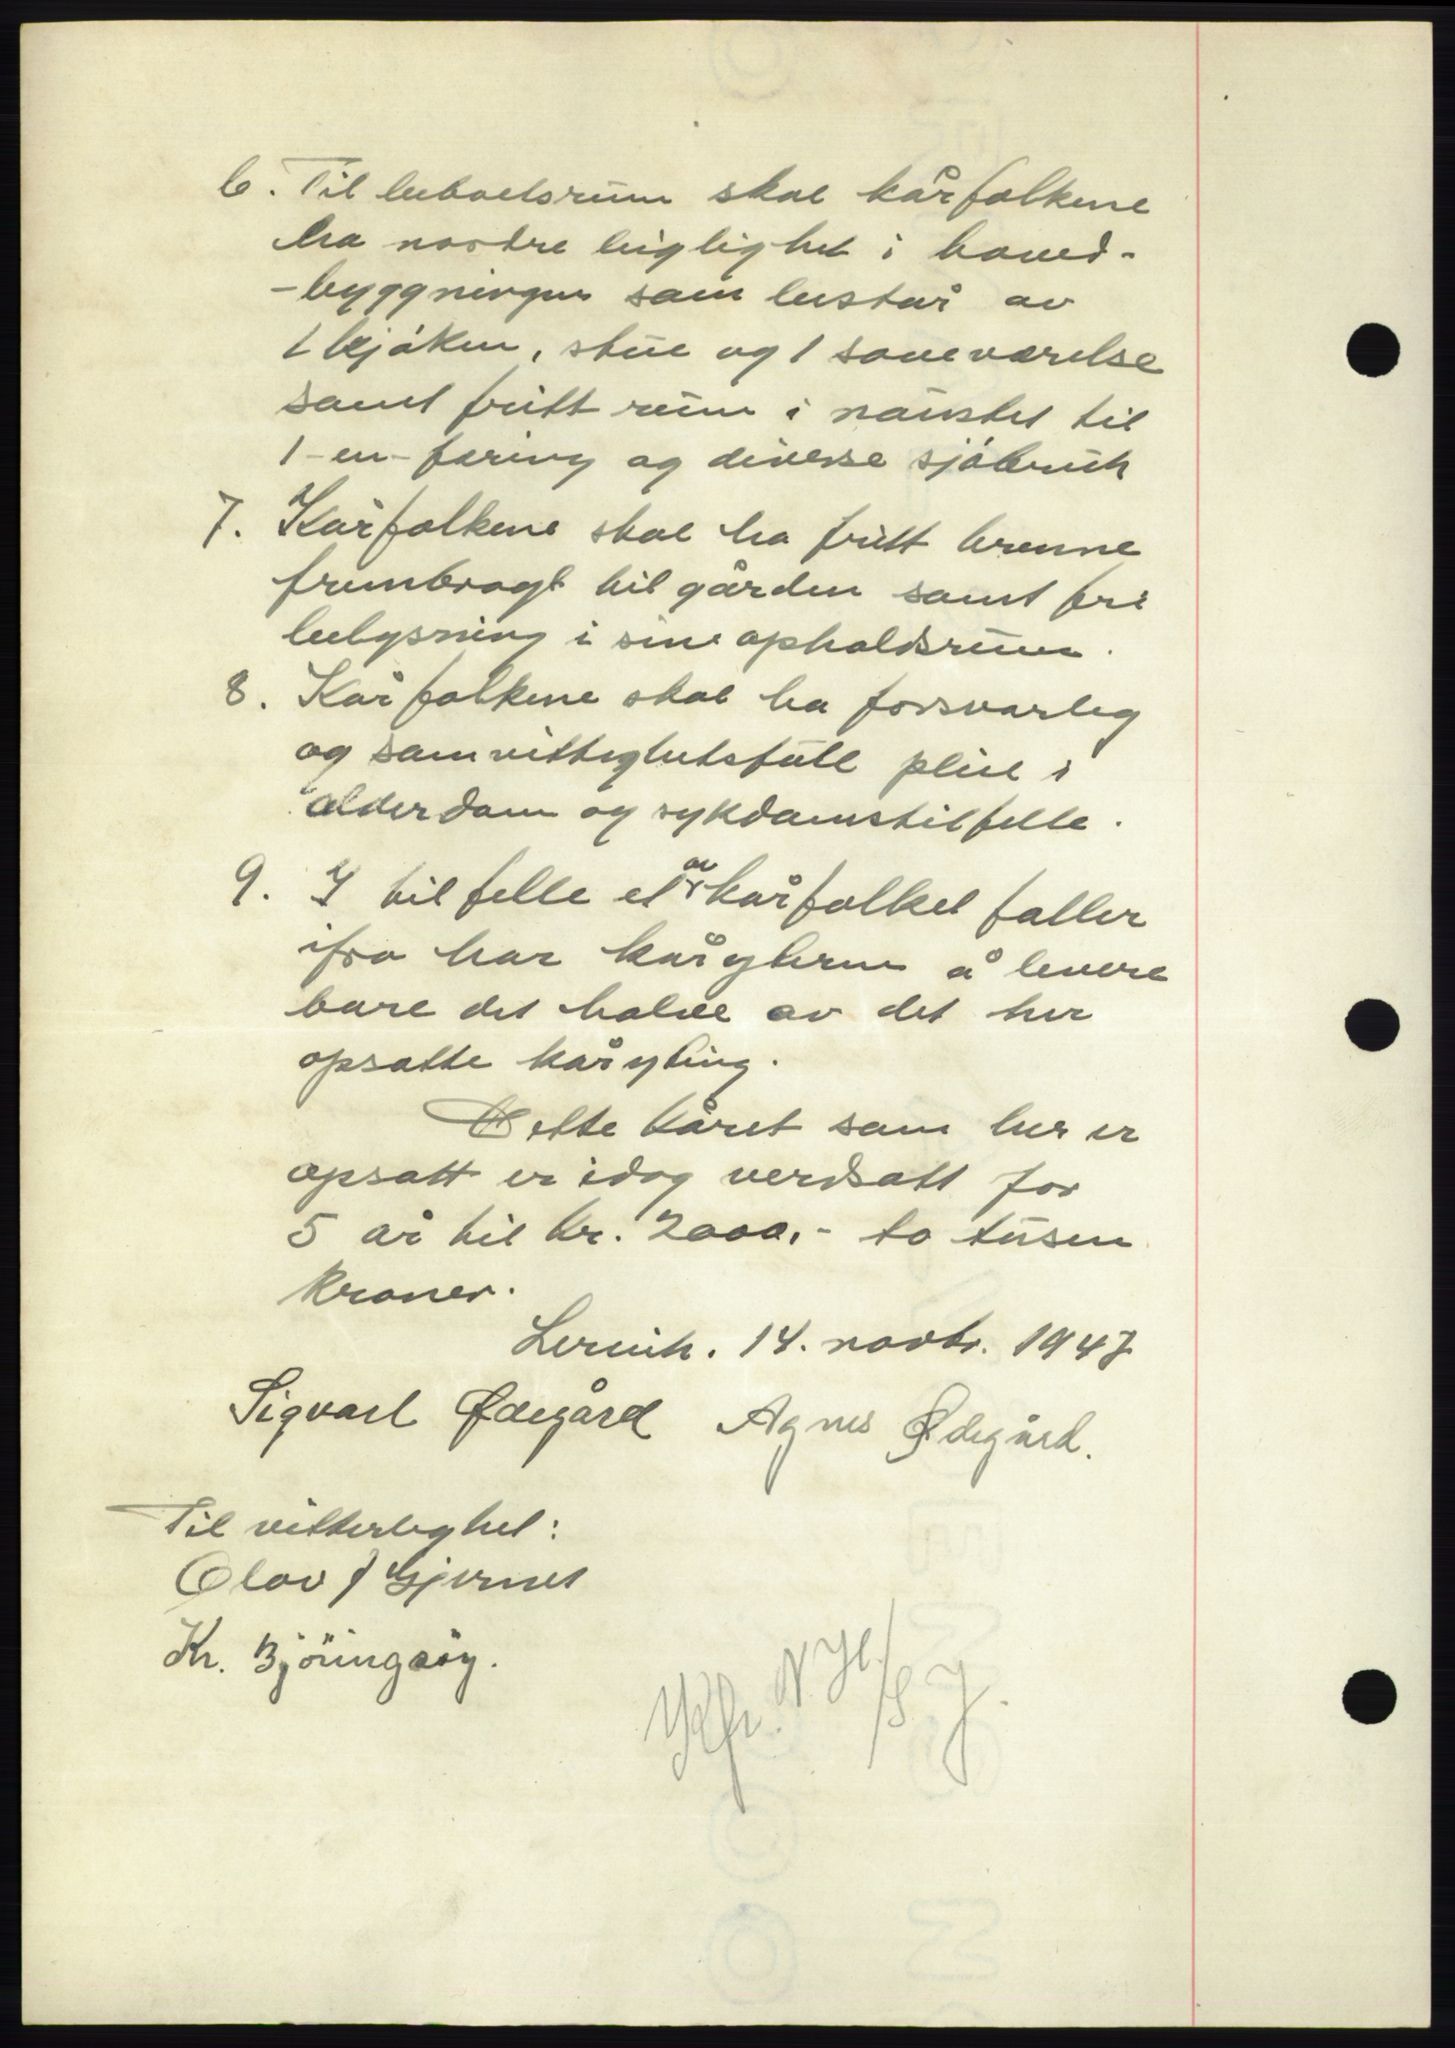 6. Til beboelsrum skal kårfolkene
ha nordre leiglighet i hoved-
-byggningen som består av
1 kjøken, stue og 1 soveværelse
samt fritt rum i naustet til
1-en-færing og diverse sjøbruk
7. Kårfolkene skal ha fritt brenne
frembragt til gården samt fri
belysning i sine opholdsrum.
8. Kårfolkene skal ha forsvarleg
og samvittighetsfull pleie i
alderdom og sykdomstilfelle.
9. I tilfelle et av kårfolket faller
ifra har kåryteren å levere
bare det halve av det her
opsatte kåryting.
Dette kåret som her er
opsatt er idag verdsatt for
5 år til kr. 2000,- to tusen
kroner.
Lervik. 14. novbr. 1947
Sigvart Ødegård Agnes Ødegård.
Til vitterleghet:
Olav J Gjernes
Kr. Björingsöy.